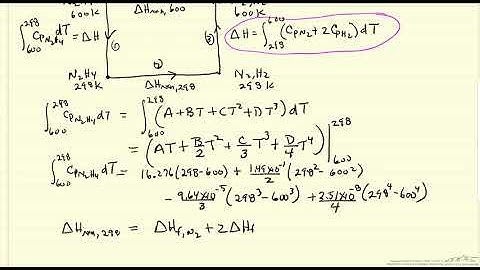 ΔHrxn, 600
600K 600K
∫₆₀₀²⁹⁸ CpN₂H₄ dT = ΔH ① ③ ΔH = ∫₂₉₈⁶⁰⁰ (CpN₂ + 2CpH₂) dT
N₂H₄ ② N₂, H₂
298K ΔHrxn, 298 298K
∫₆₀₀²⁹⁸ CpN₂H₄ dT = ∫₆₀₀²⁹⁸ (A + BT + CT² + DT³) dT
= (AT + B/2 T² + C/3 T³ + D/4 T⁴) |₆₀₀²⁹⁸
∫₆₀₀²⁹⁸ CpN₂H₄ dT = 16.276(298-600) + 1.49×10⁻¹/2 (298² - 600²)
- 9.64×10⁻⁵/3 (298³ - 600³) + 2.51×10⁻⁸/4 (298⁴ - 600⁴)
ΔHrxn, 298 = ΔHf, N₂ + 2ΔHf